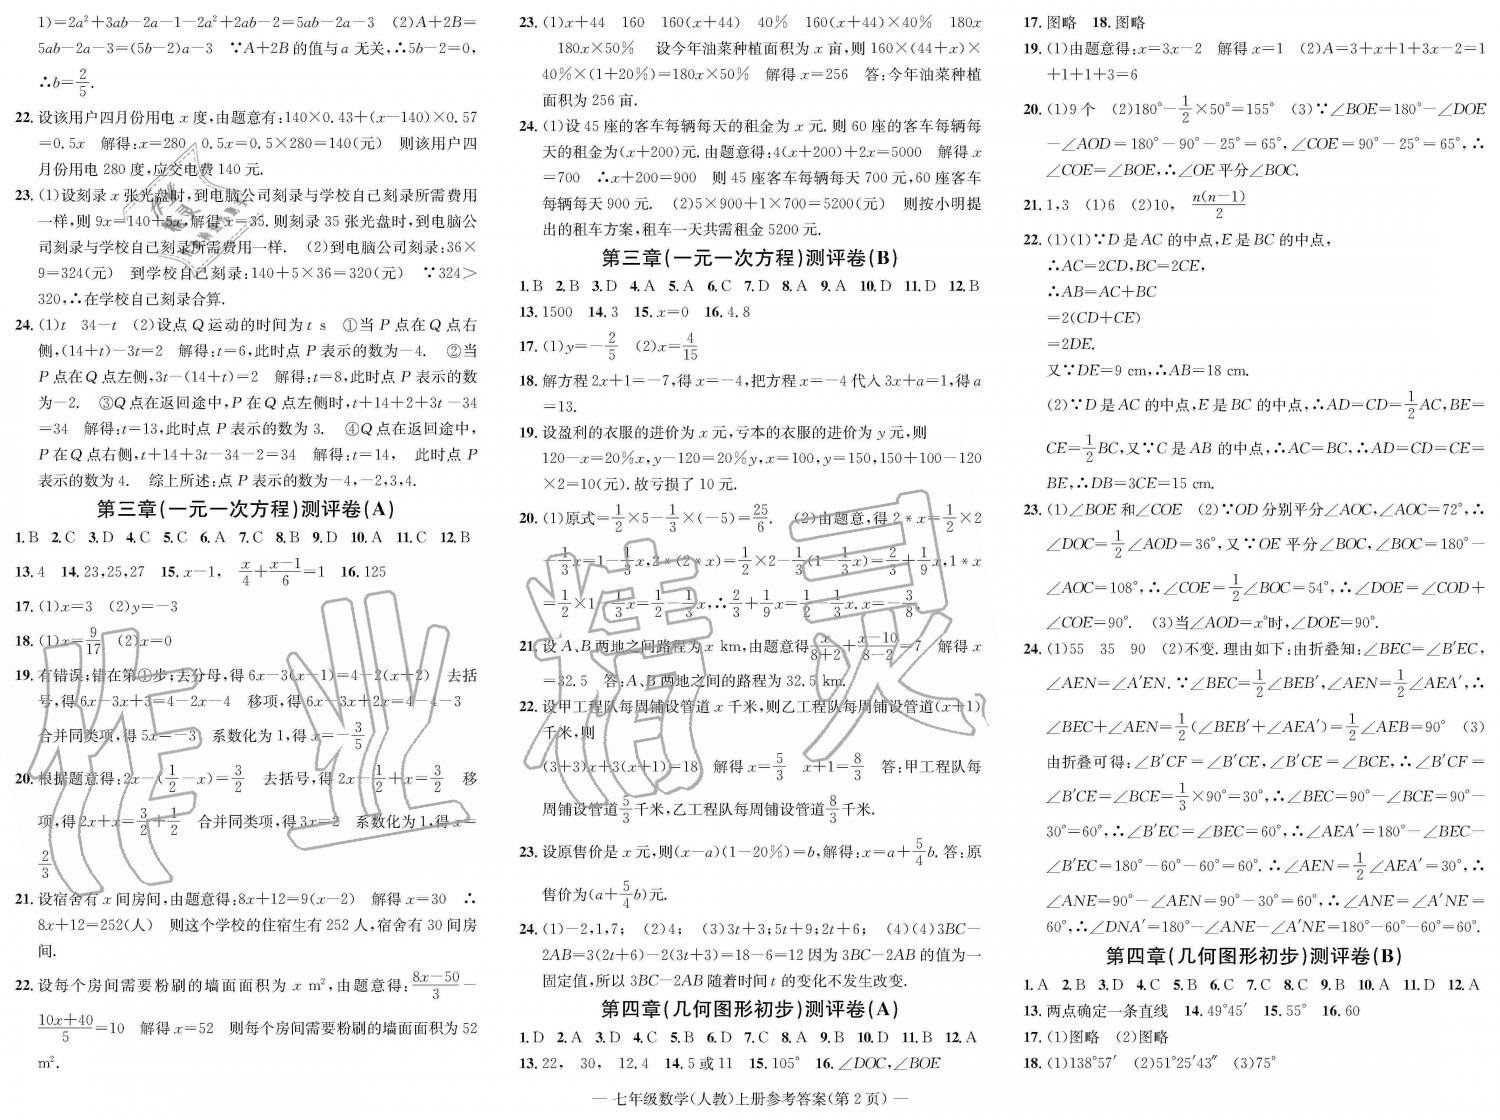 1)=2a²+3ab−2a−1−2a²+2ab−2=5ab−2a−3　(2)A+2B=
5ab−2a−3=(5b−2)a−3　∵A+2B的值与a无关,∴5b−2=0,
∴b=2/5.
22.设该用户四月份用电x度,由题意有:140×0.43+(x−140)×0.57
=0.5x　解得:x=280　0.5x=0.5×280=140(元)　则该用户四
月份用电280度,应交电费140元.
23.(1)设刻录x张光盘时,到电脑公司刻录与学校自己刻录所需费用
一样,则9x=140+5x,解得x=35.则刻录35张光盘时,到电脑公
司刻录与学校自己刻录所需费用一样.　(2)到电脑公司刻录:36×
9=324(元)　到学校自己刻录:140+5×36=320(元)　∵324>
320,∴在学校自己刻录合算.
24.(1)t　34−t　(2)设点Q运动的时间为t s　①当P点在Q点右
侧,(14+t)−3t=2　解得:t=6,此时点P表示的数为−4.　②当
P点在Q点左侧,3t−(14+t)=2　解得:t=8,此时点P表示的数
为−2.　③Q点在返回途中,P在Q点左侧时,t+14+2+3t−34
=34　解得:t=13,此时点P表示的数为3.　④Q点在返回途中,
P在Q点右侧,t+14+3t−34−2=34　解得:t=14,　此时点P
表示的数为4.　综上所述:点P表示的数为−4,−2,3,4.
第三章(一元一次方程)测评卷(A)
1.B　2.C　3.D　4.C　5.C　6.A　7.C　8.B　9.D　10.A　11.C　12.B
13.4　14.23,25,27　15.x−1,　x/4+(x−1)/6=1　16.125
17.(1)x=3　(2)y=−3
18.(1)x=9/17　(2)x=0
19.有错误;错在第①步;去分母,得6x−3(x−1)=4−2(x+2)　去括
号,得6x−3x+3=4−2x−4　移项,得6x−3x+2x=4−4−3
合并同类项,得5x=−3　系数化为1,得x=−3/5
20.根据题意得:2x−(1/2−x)=3/2　去括号,得2x−1/2+x=3/2　移
项,得2x+x=3/2+1/2　合并同类项,得3x=2　系数化为1,得x=
2/3
21.设宿舍有x间房间,由题意得:8x+12=9(x−2)　解得x=30　∴
8x+12=252(人)　则这个学校的住宿生有252人,宿舍有30间房
间.
22.设每个房间需要粉刷的墙面面积为x m²,由题意得:(8x−50)/3−
(10x+40)/5=10　解得x=52　则每个房间需要粉刷的墙面面积为52
m².
23.(1)x+44　160　160(x+44)　40%　160(x+44)×40%　180x
180x×50%　设今年油菜种植面积为x亩,则160×(44+x)×
40%×(1+20%)=180x×50%　解得x=256　答:今年油菜种植
面积为256亩.
24.(1)设45座的客车每辆每天的租金为x元.则60座的客车每辆每
天的租金为(x+200)元.由题意得:4(x+200)+2x=5000　解得x
=700　∴x+200=900　则45座客车每辆每天700元,60座客车
每辆每天900元.　(2)5×900+1×700=5200(元)　则按小明提
出的租车方案,租车一天共需租金5200元.
第三章(一元一次方程)测评卷(B)
1.B　2.B　3.D　4.A　5.A　6.C　7.D　8.A　9.A　10.D　11.D　12.B
13.1500　14.3　15.x=0　16.4.8
17.(1)y=−2/5　(2)x=4/15
18.解方程2x+1=−7,得x=−4,把方程x=−4代入3x+a=1,得a
=13.
19.设盈利的衣服的进价为x元,亏本的衣服的进价为y元,则
120−x=20%x,y−120=20%y,x=100,y=150,150+100−120
×2=10(元).故亏损了10元.
20.(1)原式=1/2×5−1/3×(−5)=25/6.　(2)由题意,得2*x=1/2×2
−1/3x=1−1/3x,2*(2*x)=1/2×2−1/3(1−1/3x)=2/3+1/9x,1*x
=1/2×1−1/3x=1/2−1/3x,∴2/3+1/9x=1/2−1/3x.x=−3/8.
21.设A、B两地之间路程为x km,由题意得x/(8+2)+(x−10)/(8−2)=7　解得x
=32.5　答:A、B两地之间的路程为32.5 km.
22.设甲工程队每周铺设管道x千米,则乙工程队每周铺设管道(x+1)
千米,则
(3+3)x+3(x+1)=18　解得x=5/3　x+1=8/3　答:甲工程队每
周铺设管道5/3千米,乙工程队每周铺设管道8/3千米.
23.设原售价是x元,则(x−a)(1−20%)=b,解得:x=a+5/4b.答:原
售价为(a+5/4b)元.
24.(1)−2,1,7;　(2)4;　(3)3t+3;5t+9;2t+6;　(4)(4)3BC−
2AB=3(2t+6)−2(3t+3)=18−6=12因为3BC−2AB的值为一
固定值,所以3BC−2AB随着时间t的变化不发生改变.
第四章(几何图形初步)测评卷(A)
1.D　2.A　3.D　4.C　5.B　6.D　7.C　8.A　9.B　10.D　11.B　12.A
13.22,　30,　12.4　14.5或11　15.105°　16.∠DOC,∠BOE
17.图略　18.图略
19.(1)由题意得:x=3x−2　解得x=1　(2)A=3+x+1+3x−2=1
+1+1+3=6
20.(1)9个　(2)180°−1/2×50°=155°　(3)∵∠BOE=180°−∠DOE
−∠AOD=180°−90°−25°=65°,∠COE=90°−25°=65°,∴
∠COE=∠BOE,∴∠OE平分∠BOC.
21.1,3　(1)6　(2)10,　n(n−1)/2
22.(1)(1)∵D是AC的中点,E是BC的中点,
∴AC=2CD,BC=2CE,
∴AB=AC+BC
=2(CD+CE)
=2DE.
又∵DE=9 cm,∴AB=18 cm.
(2)∵D是AC的中点,E是BC的中点,∴AD=CD=1/2AC,BE=
CE=1/2BC,又∵C是AB的中点,∴AC=BC,∴AD=CD=CE=
BE,∴DB=3CE=15 cm.
23.(1)∠BOE和∠COE　(2)∵OD分别平分∠AOC,∠AOC=72°,∴
∠DOC=1/2∠AOD=36°,又∵OE平分∠BOC,∠BOC=180°−
∠AOC=108°,∴∠COE=1/2∠BOC=54°,∴∠DOE=∠COD+
∠COE=90°.　(3)当∠AOD=x°时,∠DOE=90°.
24.(1)55　35　90　(2)不变.理由如下:由折叠知:∠BEC=∠B′EC,
∠AEN=∠A′EN.∵∠BEC=1/2∠BEB′,∠AEN=1/2∠AEA′,∴
∠BEC+∠AEN=1/2(∠BEB′+∠AEA′)=1/2∠AEB=90°　(3)
由折叠可得:∠B′CF=∠B′CE,∠B′CE=∠BCE,∴∠B′CF=
∠B′CE=∠BCE=1/3×90°=30°,∴∠BEC=90°−∠BCE=90°−
30°=60°,∴∠B′EC=∠BEC=60°,∴∠AEA′=180°−∠BEC−
∠B′EC=180°−60°−60°=60°.∴∠AEN=1/2∠AEA′=30°,∴
∠ANE=90°−∠AEN=90°−30°=60°,∴∠ANE=∠A′NE=
60°,∴∠DNA′=180°−∠ANE−∠A′NE=180°−60°−60°=60°.
第四章(几何图形初步)测评卷(B)
1.A　2.B　3.D　4.C　5.B　6.C　7.C　8.C　9.B　10.A　11.D　12.A
13.两点确定一条直线　14.49°45′　15.55°　16.60
17.(1)图略　(2)图略
18.(1)138°57′　(2)51°25′43″　(3)75°
— 七年级数学(人教)上册参考答案(第2页) —
作业精灵